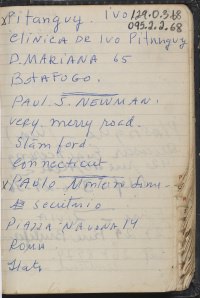 x Pitanguy. Ivo 129.0.3.68
095.2.2.68
Clinica de Ivo Pitanguy
D. MARIANA 65
BOTAFOGO.
PAUL. S. NEWMAN.
very. merry road.
Stamford.
connecticut
x PAULO Monteiro Lima
secretario
PIAZZA NAVONA 14
ROMA